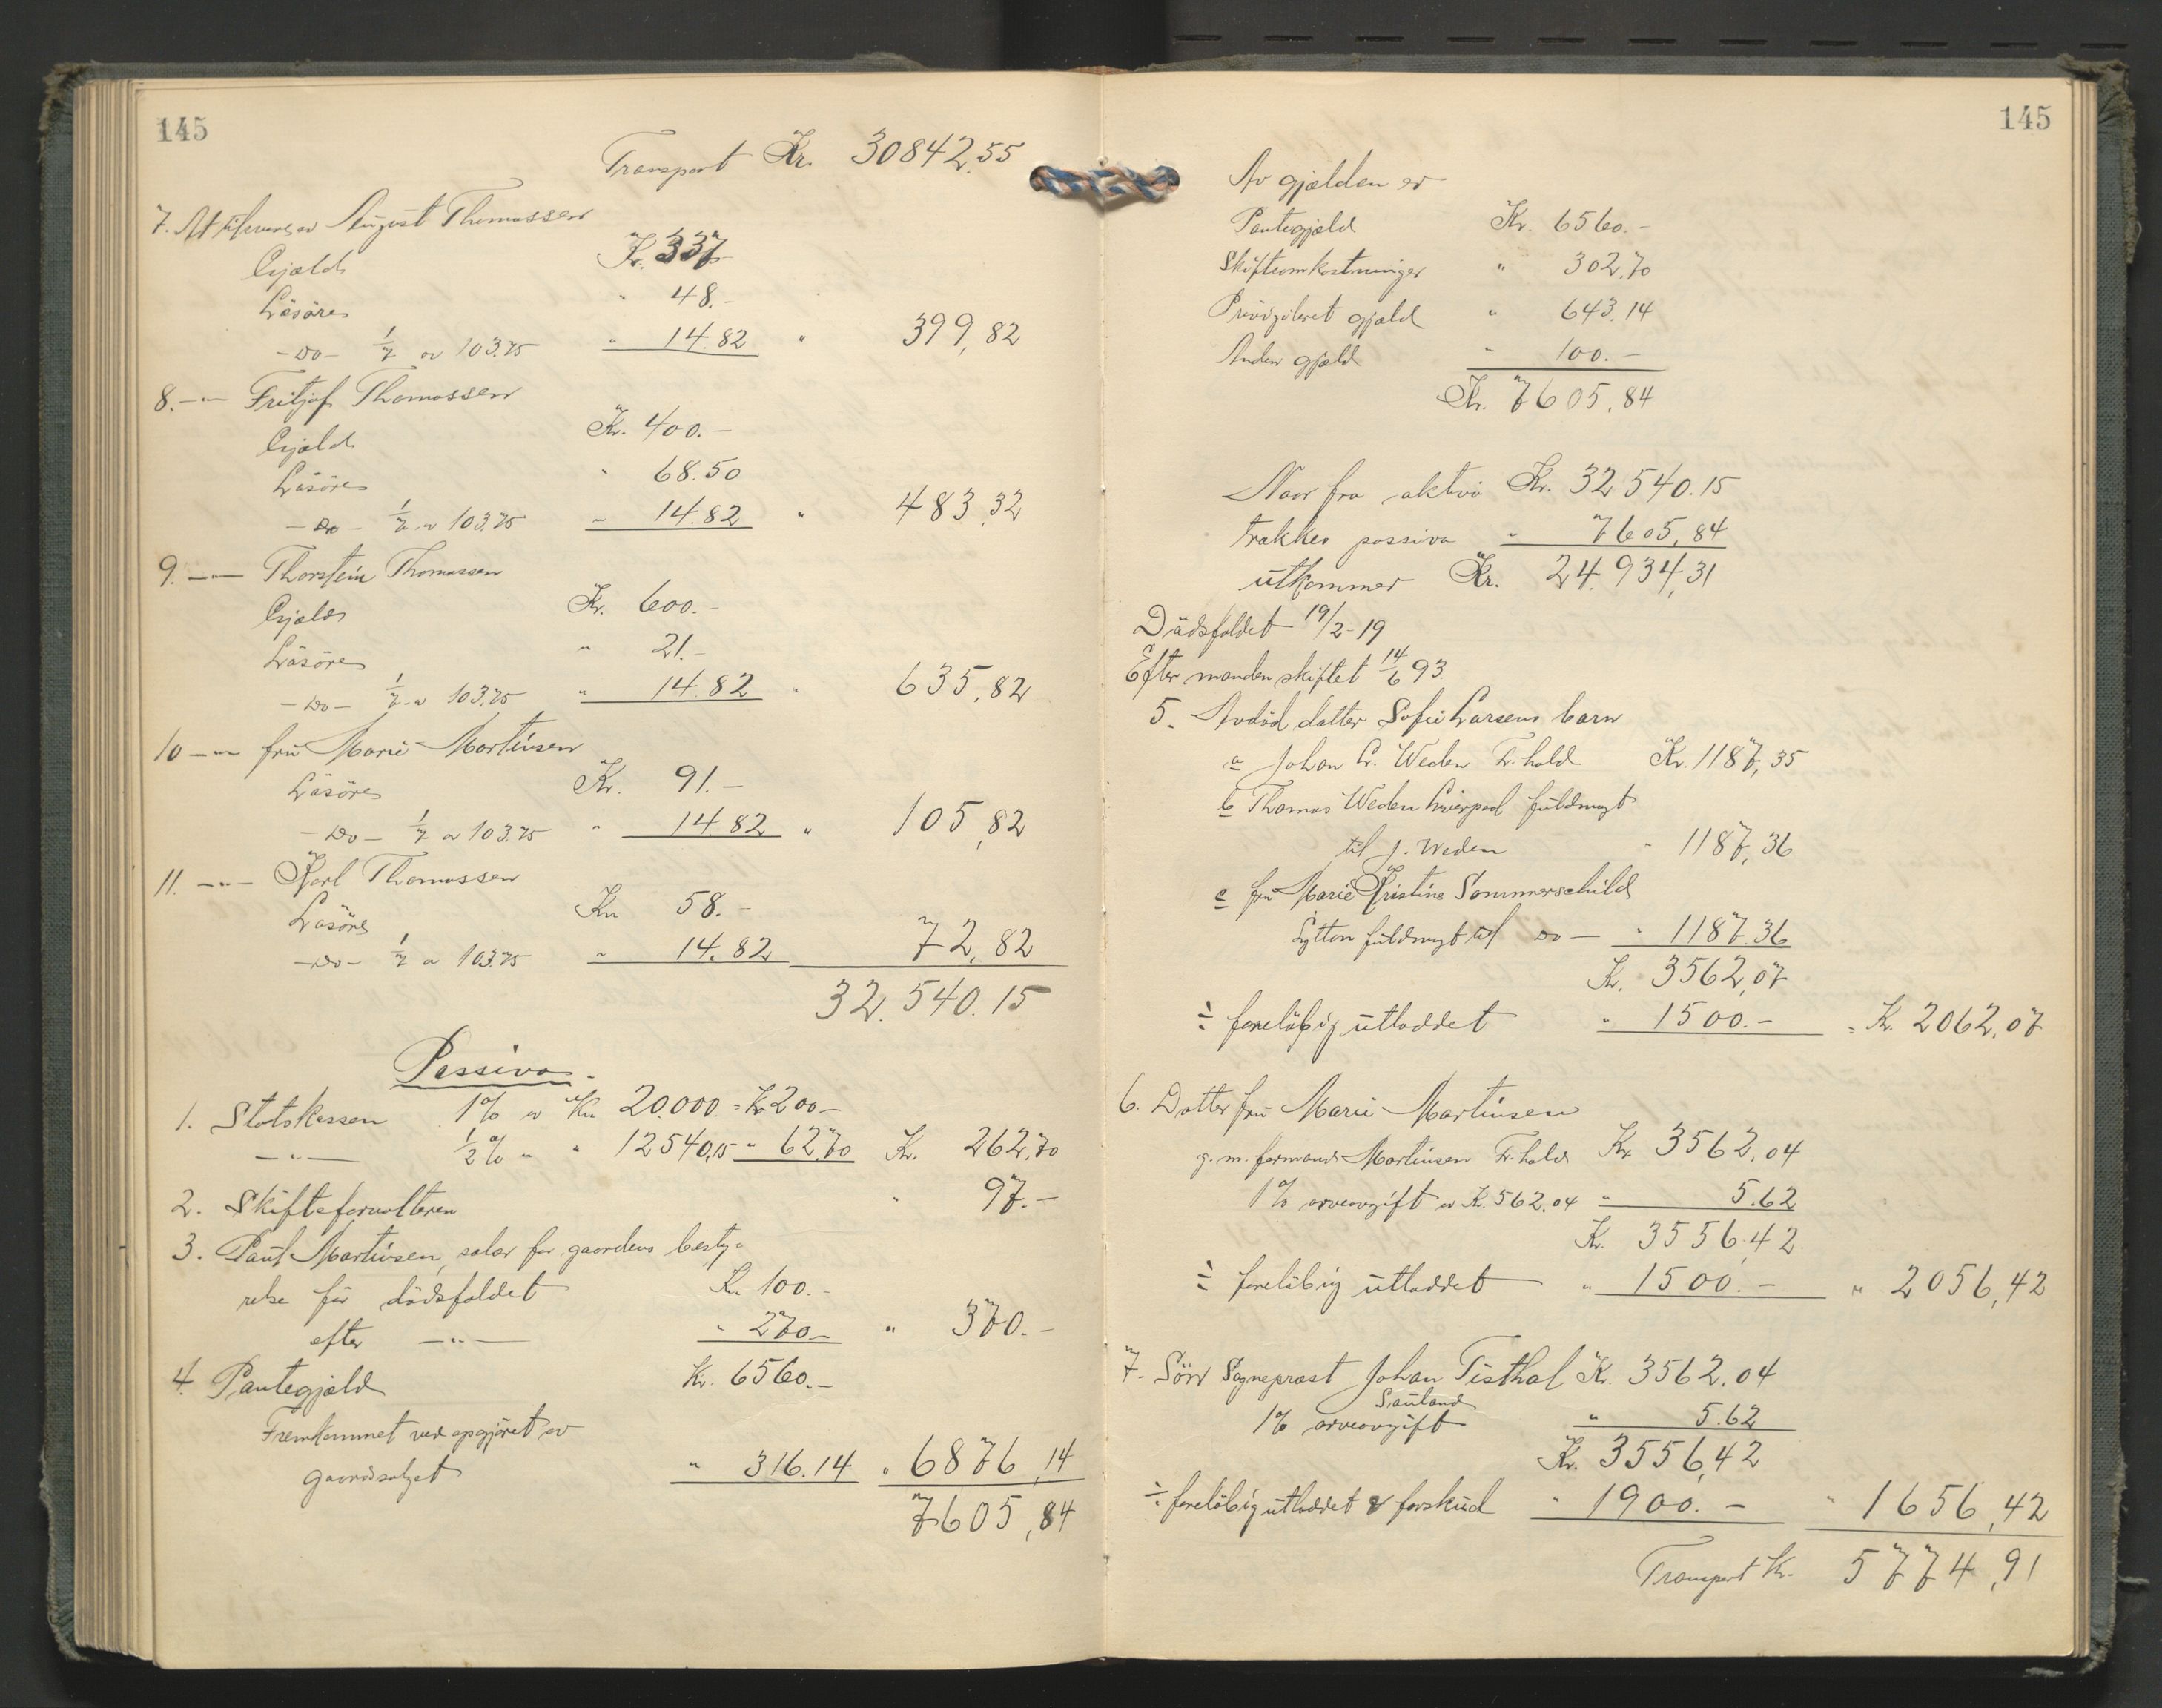 145
Transport Kr. 30842,55
7. At August Thomassen
Gjæld Kr. 337
Løsøre " 48.-
-Do- 1/7 av 103.75 " 14.82 " 399,82
8. -"- Fritjof Thomassen
Gjæld Kr. 400.-
Løsøre " 68.50
-Do- 1/7 av 103.75 " 14.82 " 483,32
9. -"- Thorstein Thomassen
Gjæld Kr. 600.-
Løsøre " 21.-
-Do- 1/7 av 103,75 " 14.82 " 635,82
10 -"- fru Marie Martinsen
Løsøre Kr. 91.-
-Do- 1/7 av 103.75 " 14.82 " 105,82
11. -"- Karl Thomassen
Løsøre Kr 58.-
-Do- 1/7 av 103.75 " 14.82 72,82
32.540.15
Passiva.
1. Statskassen 1% av Kr 20.000.- Kr 200-
-"- 1/2% " " 12540,15 " 62.70 Kr. 262,70
2. Skifteforvalteren " 97.-
3. Paul Martinsen, salær for gaardens besty-
relse før dødsfaldet Kr. 100.-
efter -"- " 270.- " 370.-
4. Pantegjæld Kr. 6560.-
Fremkommet ved opgjøret av
gaardsalget " 316.14 " 6876,14
7605,84
145
Av gjælden er
Pantegjæld Kr. 6560.-
Skifteomkostninger " 302,70
Privigileret gjæld " 643.14
Anden gjæld " 100.-
Kr. 7605,84
Naar fra aktiva Kr. 32540.15
trækkes passiva " 7605,84
utkommer Kr. 24.934,31
Dødsfaldet 19/2-19
Efter manden skiftet 14/6 93
5. Avdød datter Sofie Larsens barn
a Johan L. Weden F.hald Kr. 1187,35
b Thomas Weden Liverpool fuldmagt
til J. Weden " 1187,36
c fru Marie Kristine Sommerschild
Lytton fuldmagt til Do - " 1187.36
Kr. 3562,07
÷ foreløbig utloddet " 1500.- = Kr. 2062,07
6. Datter fru Marie Martinsen
g. m. formand Martinsen Fr.hald Kr 3562,04
1% arveavgift av Kr. 562.04 " 5.62
Kr. 3556.42
÷ foreløbig utloddet " 1500.- " 2056,42
7. Søn Sogneprest Johan Tisthal Kr. 3562.04
Sauland
1% arveavgift " 5.62
Kr. 3556,42
÷ foreløbig utloddet & forskud " 1900.- " 1656,42
Transport Kr. 5774,91